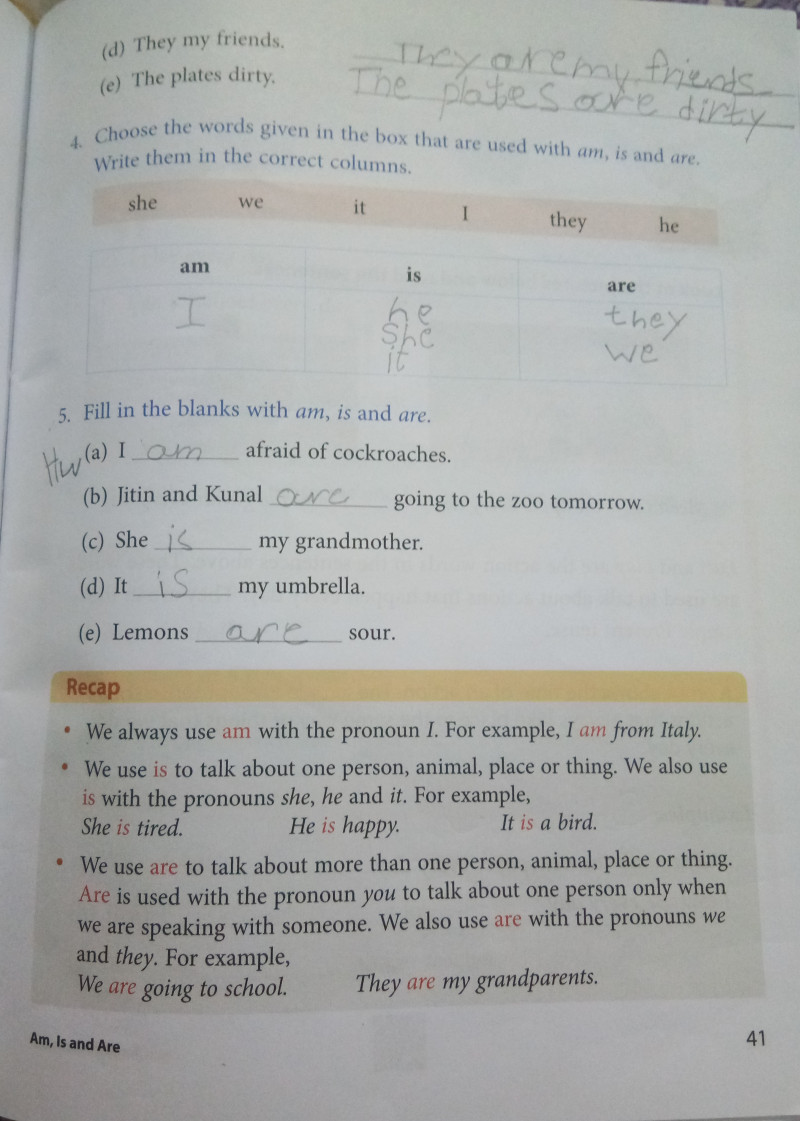 (d) They my friends. They are my friends
(e) The plates dirty. The plates are dirty
4. Choose the words given in the box that are used with am, is and are.
Write them in the correct columns.
she we it I they he
am is are
I he they
she we
it
5. Fill in the blanks with am, is and are.
Hw (a) I am afraid of cockroaches.
(b) Jitin and Kunal are going to the zoo tomorrow.
(c) She is my grandmother.
(d) It is my umbrella.
(e) Lemons are sour.
Recap
• We always use am with the pronoun I. For example, I am from Italy.
• We use is to talk about one person, animal, place or thing. We also use
is with the pronouns she, he and it. For example,
She is tired. He is happy. It is a bird.
• We use are to talk about more than one person, animal, place or thing.
Are is used with the pronoun you to talk about one person only when
we are speaking with someone. We also use are with the pronouns we
and they. For example,
We are going to school. They are my grandparents.
Am, Is and Are 41